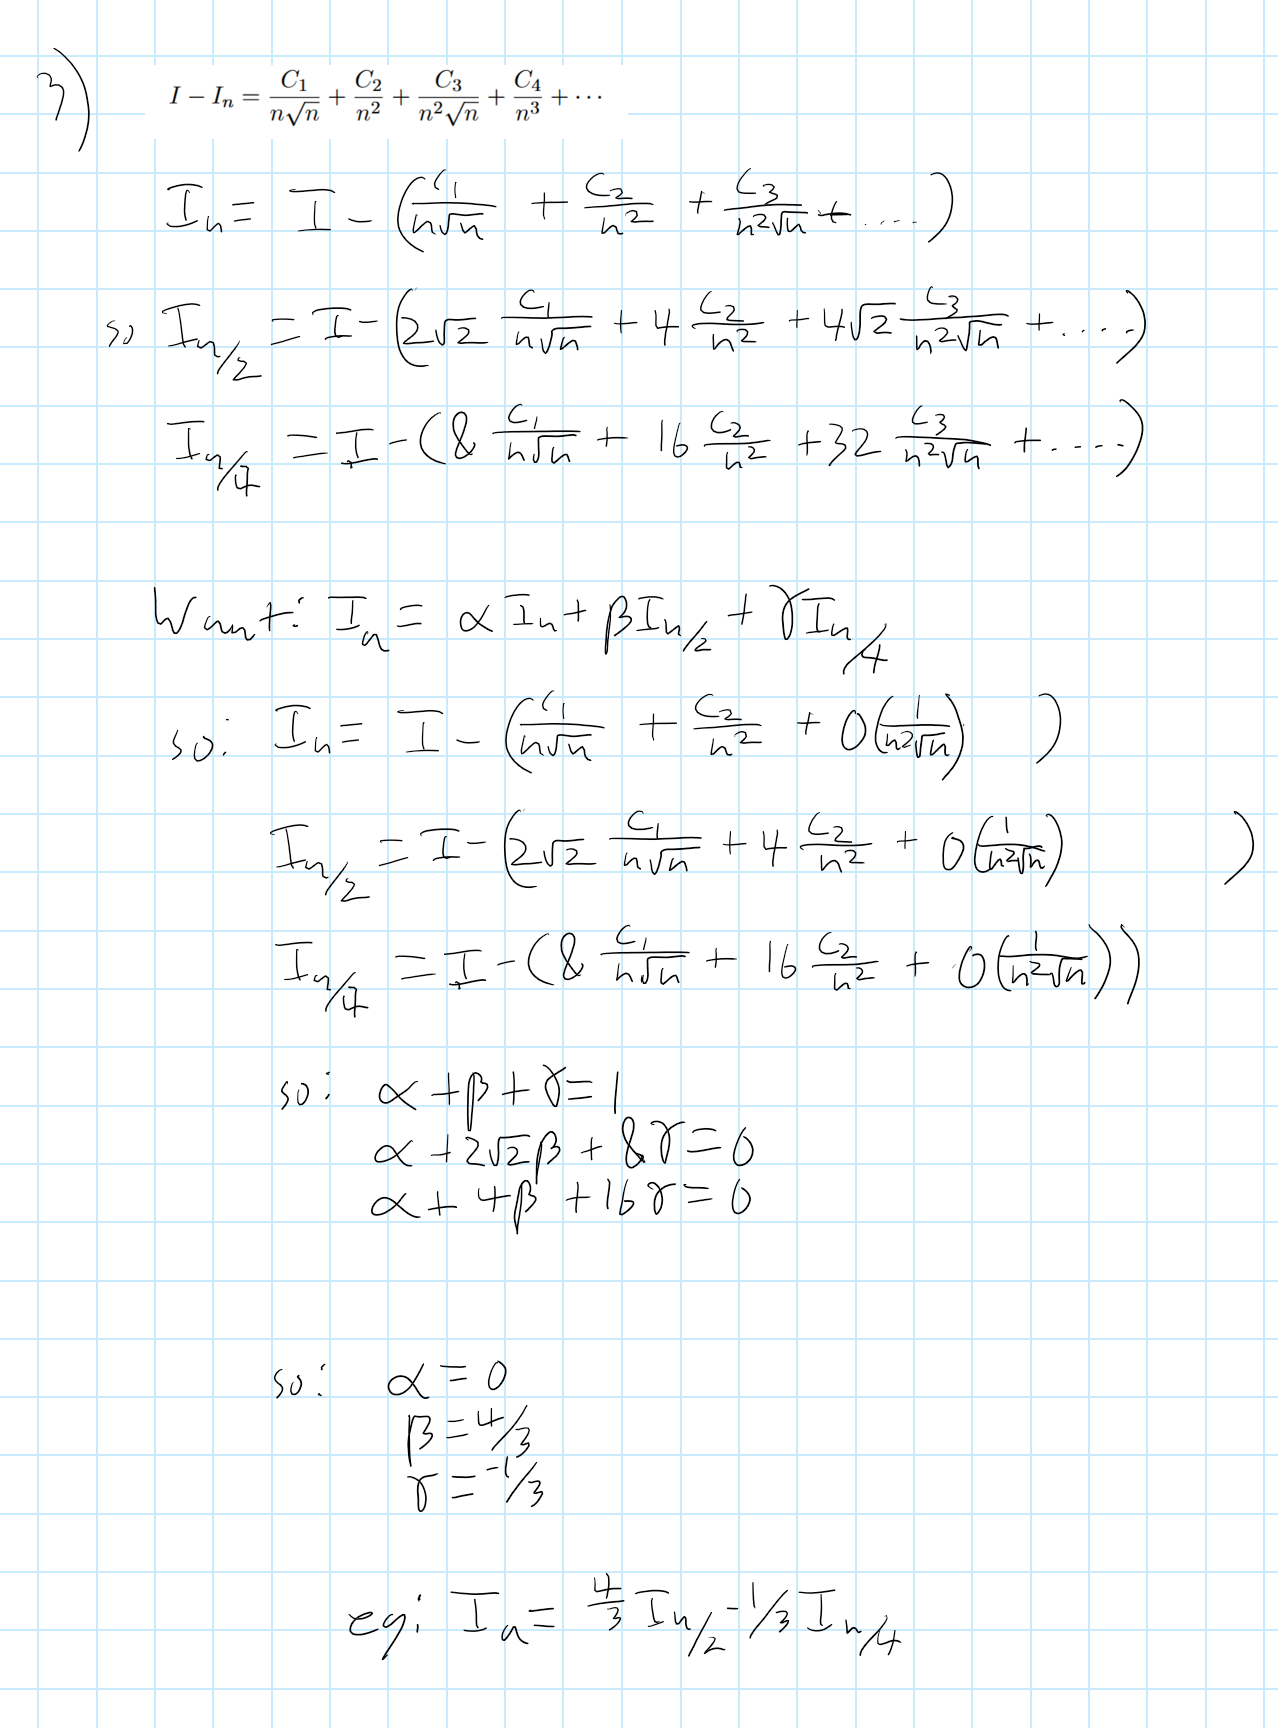 3) I − Iₙ = C₁/(n√n) + C₂/n² + C₃/(n²√n) + C₄/n³ + ···
Iₙ = I − (C₁/(n√n) + C₂/n² + C₃/(n²√n) + ....)
so I_{n/2} = I − (2√2 C₁/(n√n) + 4 C₂/n² + 4√2 C₃/(n²√n) + ....)
I_{n/4} = I − (8 C₁/(n√n) + 16 C₂/n² + 32 C₃/(n²√n) + ....)
Want: Iₐ = α Iₙ + β I_{n/2} + γ I_{n/4}
so: Iₙ = I − (C₁/(n√n) + C₂/n² + O(1/(n²√n)) )
I_{n/2} = I − (2√2 C₁/(n√n) + 4 C₂/n² + O(1/(n²√n)) )
I_{n/4} = I − (8 C₁/(n√n) + 16 C₂/n² + O(1/(n²√n)))
so: α + β + γ = 1
α + 2√2β + 8γ = 0
α + 4β + 16γ = 0
so: α = 0
β = 4/3
γ = -1/3
eg: Iₐ = 4/3 I_{n/2} - 1/3 I_{n/4}